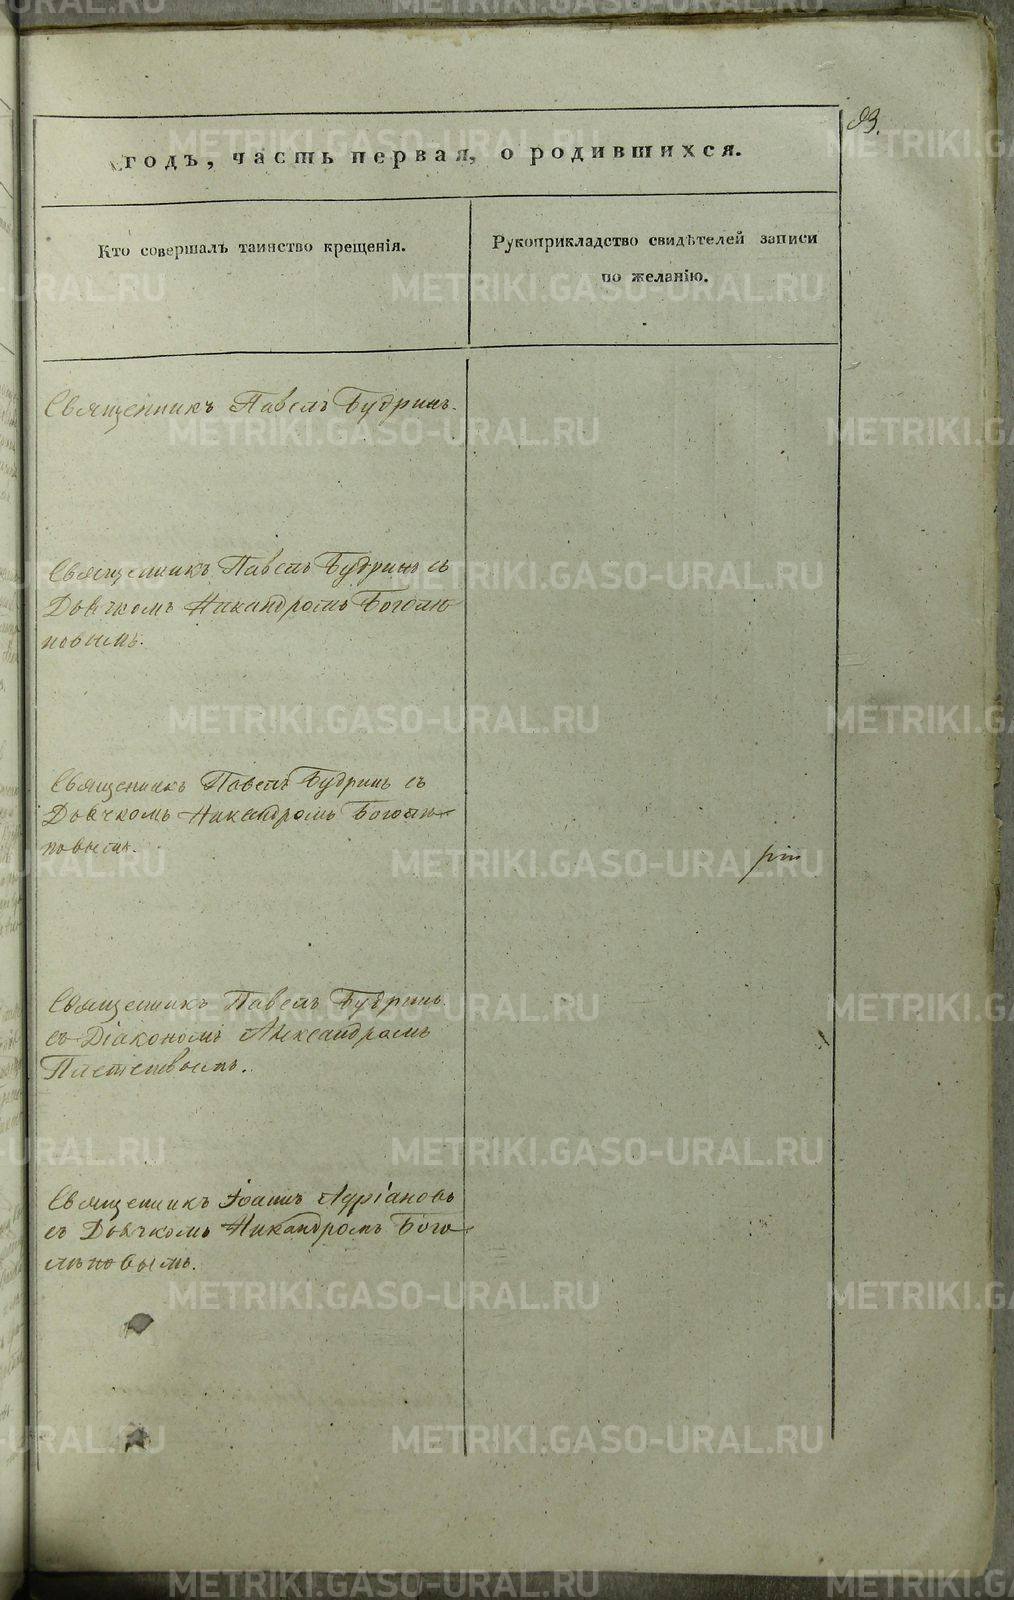 93.
годъ, часть первая, о родившихся.
Кто совершалъ таинство крещенія.
Рукоприкладство свидѣтелей записи
по желанію.
Священникъ Павелъ Будринъ.
Священникъ Павелъ Будринъ съ
Дьячкомъ Никандромъ Боголѣ-
повымъ.
Священникъ Павелъ Будринъ съ
Дьячкомъ Никандромъ Боголѣ-
повымъ.
Священникъ Павелъ Будринъ
съ Діакономъ Александромъ
Священникъ Іоаннъ Адріановъ
съ Дьячкомъ Никандромъ Бого-
лѣповымъ.
METRIKI.GASO-URAL.RU